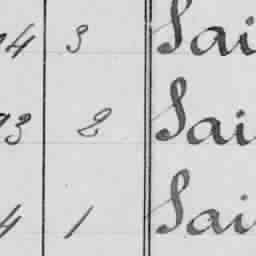 4 3 Sai
3 2 Sai
4 1 Sai